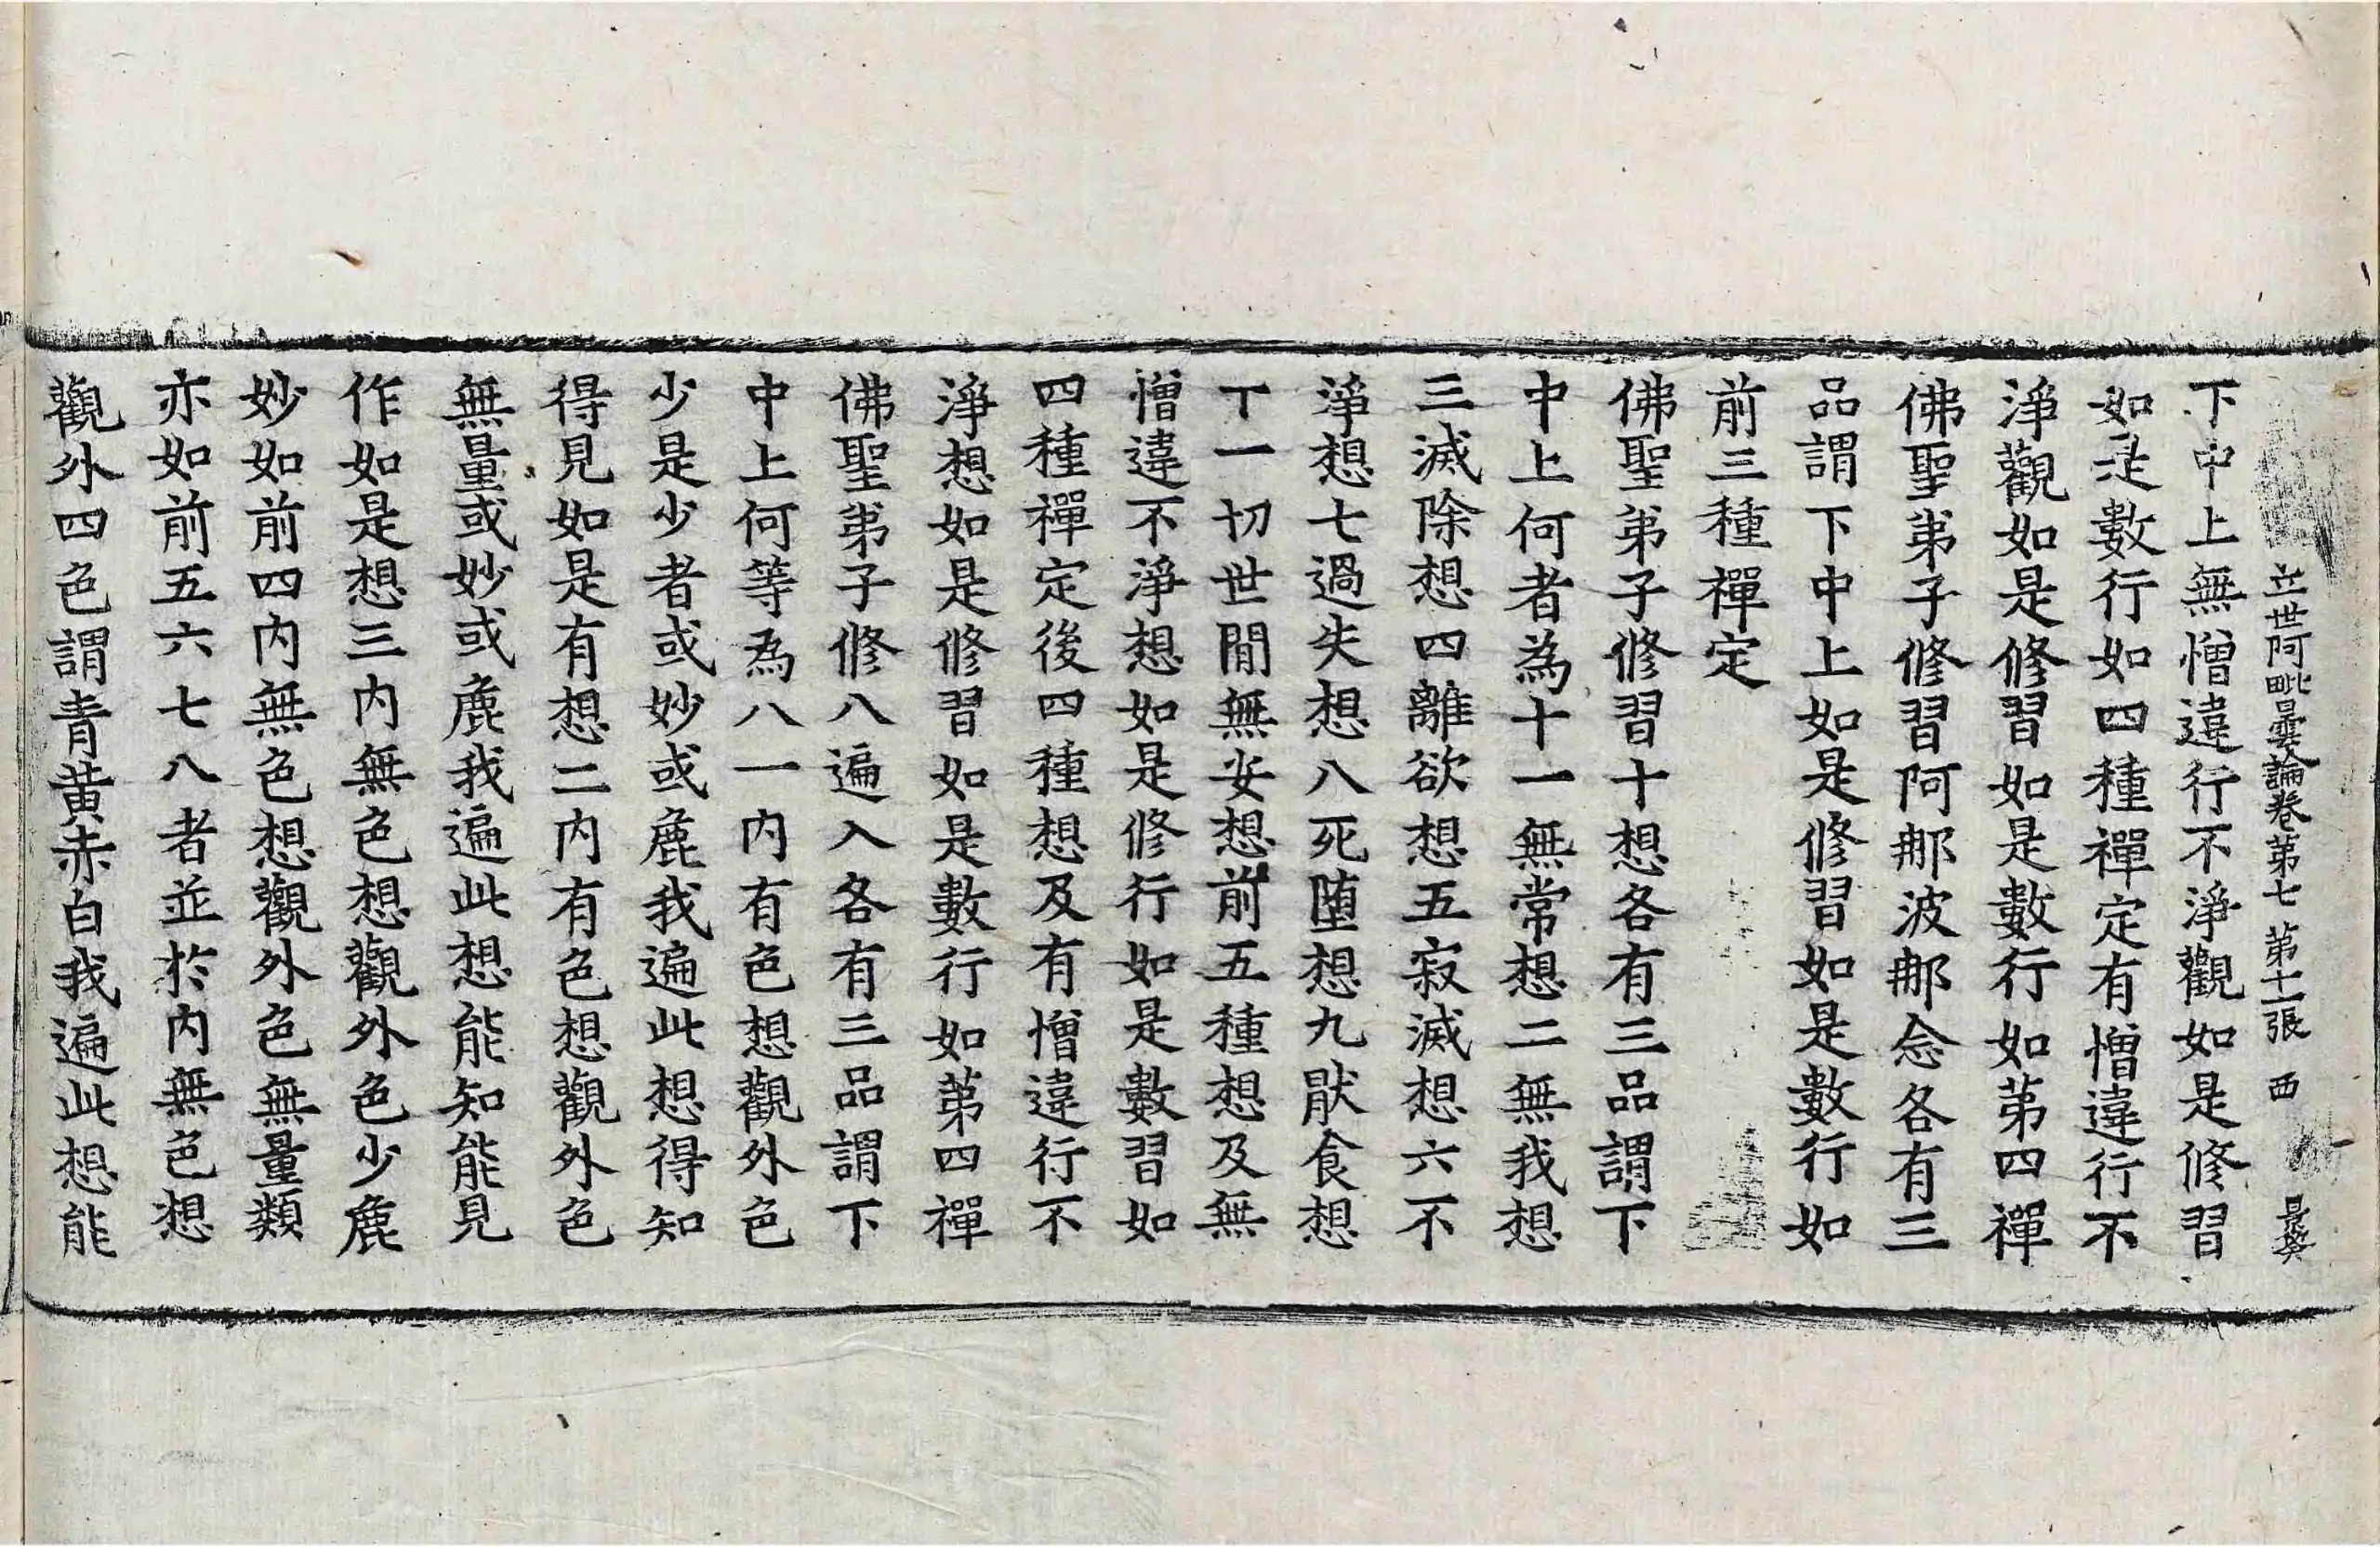 立世阿毗曇論卷苐七 苐十一張 西
下中上無憎違行不淨觀如是修習
如是數行如四種禪定有憎違行不
淨觀如是修習如是數行如苐四禪
佛聖弟子修習阿那波那念各有三
品謂下中上如是修習如是數行如
前三種禪定
佛聖弟子修習十想各有三品謂下
中上何者為十一無常想二無我想
三滅除想四離欲想五寂滅想六不
淨想七過失想八死墮想九猒食想
丅一切世間無安想前五種想及無
憎違不淨想如是修行如是數習如
四種禪定後四種想及有憎違行不
淨想如是修習如是數行如苐四禪
佛聖弟子修八遍入各有三品謂下
中上何等為八一內有色想觀外色
少是少者或妙或麁我遍此想得知
得見如是有想二內有色想觀外色
無量或妙或麁我遍此想能知能見
作如是想三內無色想觀外色少麁
妙如前四內無色想觀外色無量類
亦如前五六七八者並於內無色想
觀外四色謂青黃赤白我遍此想能